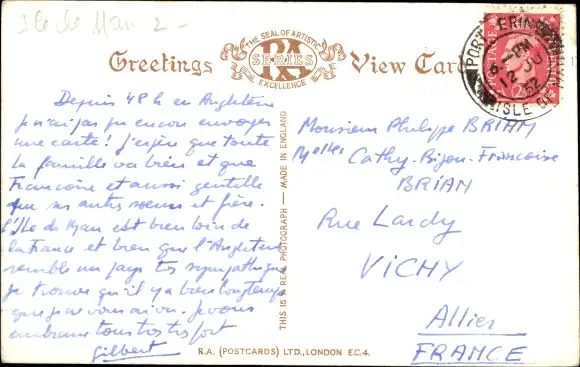 Ile de Man 2 -
THE SEAL OF ARTISTIC
Greetings RA SERIES View Card
EXCELLENCE
PORT ERIN
PM
6 2
52
ISLE OF
Depuis 48 h en Angleterre
je n'ai pas pu encore envoyer
une carte! J'espère que toute
la famille va bien et que
Francoise est aussi gentille
que ses autres soeurs et frère.
l'Ile de Man est bien loin de
la France et bien que l'Angleterre
semble un pays très sympathique
je trouve qu'il y a bien longtemps
que je ne vous ai vu. Je vous
embrasse tous très très fort
Gilbert
THIS IS A REAL PHOTOGRAPH — MADE IN ENGLAND
Monsieur Philippe BRIAM
Melles Cathy - Bijou - Francoise
BRIAM
Rue Lardy
VICHY
Allier
FRANCE
R.A. (POSTCARDS) LTD., LONDON E.C.4.